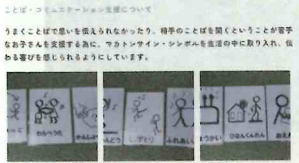 ことば・コミュニケーション支援について
うまくことばで思いを伝えられなかったり、相手のことばを聞くということが苦手
なお子さんを支援する為に、マカトンサイン・シンボルを生活の中に取り入れ、伝
わる喜びを感じられるようにしています。
わらべうた
ふれあい
ひなんくんれん